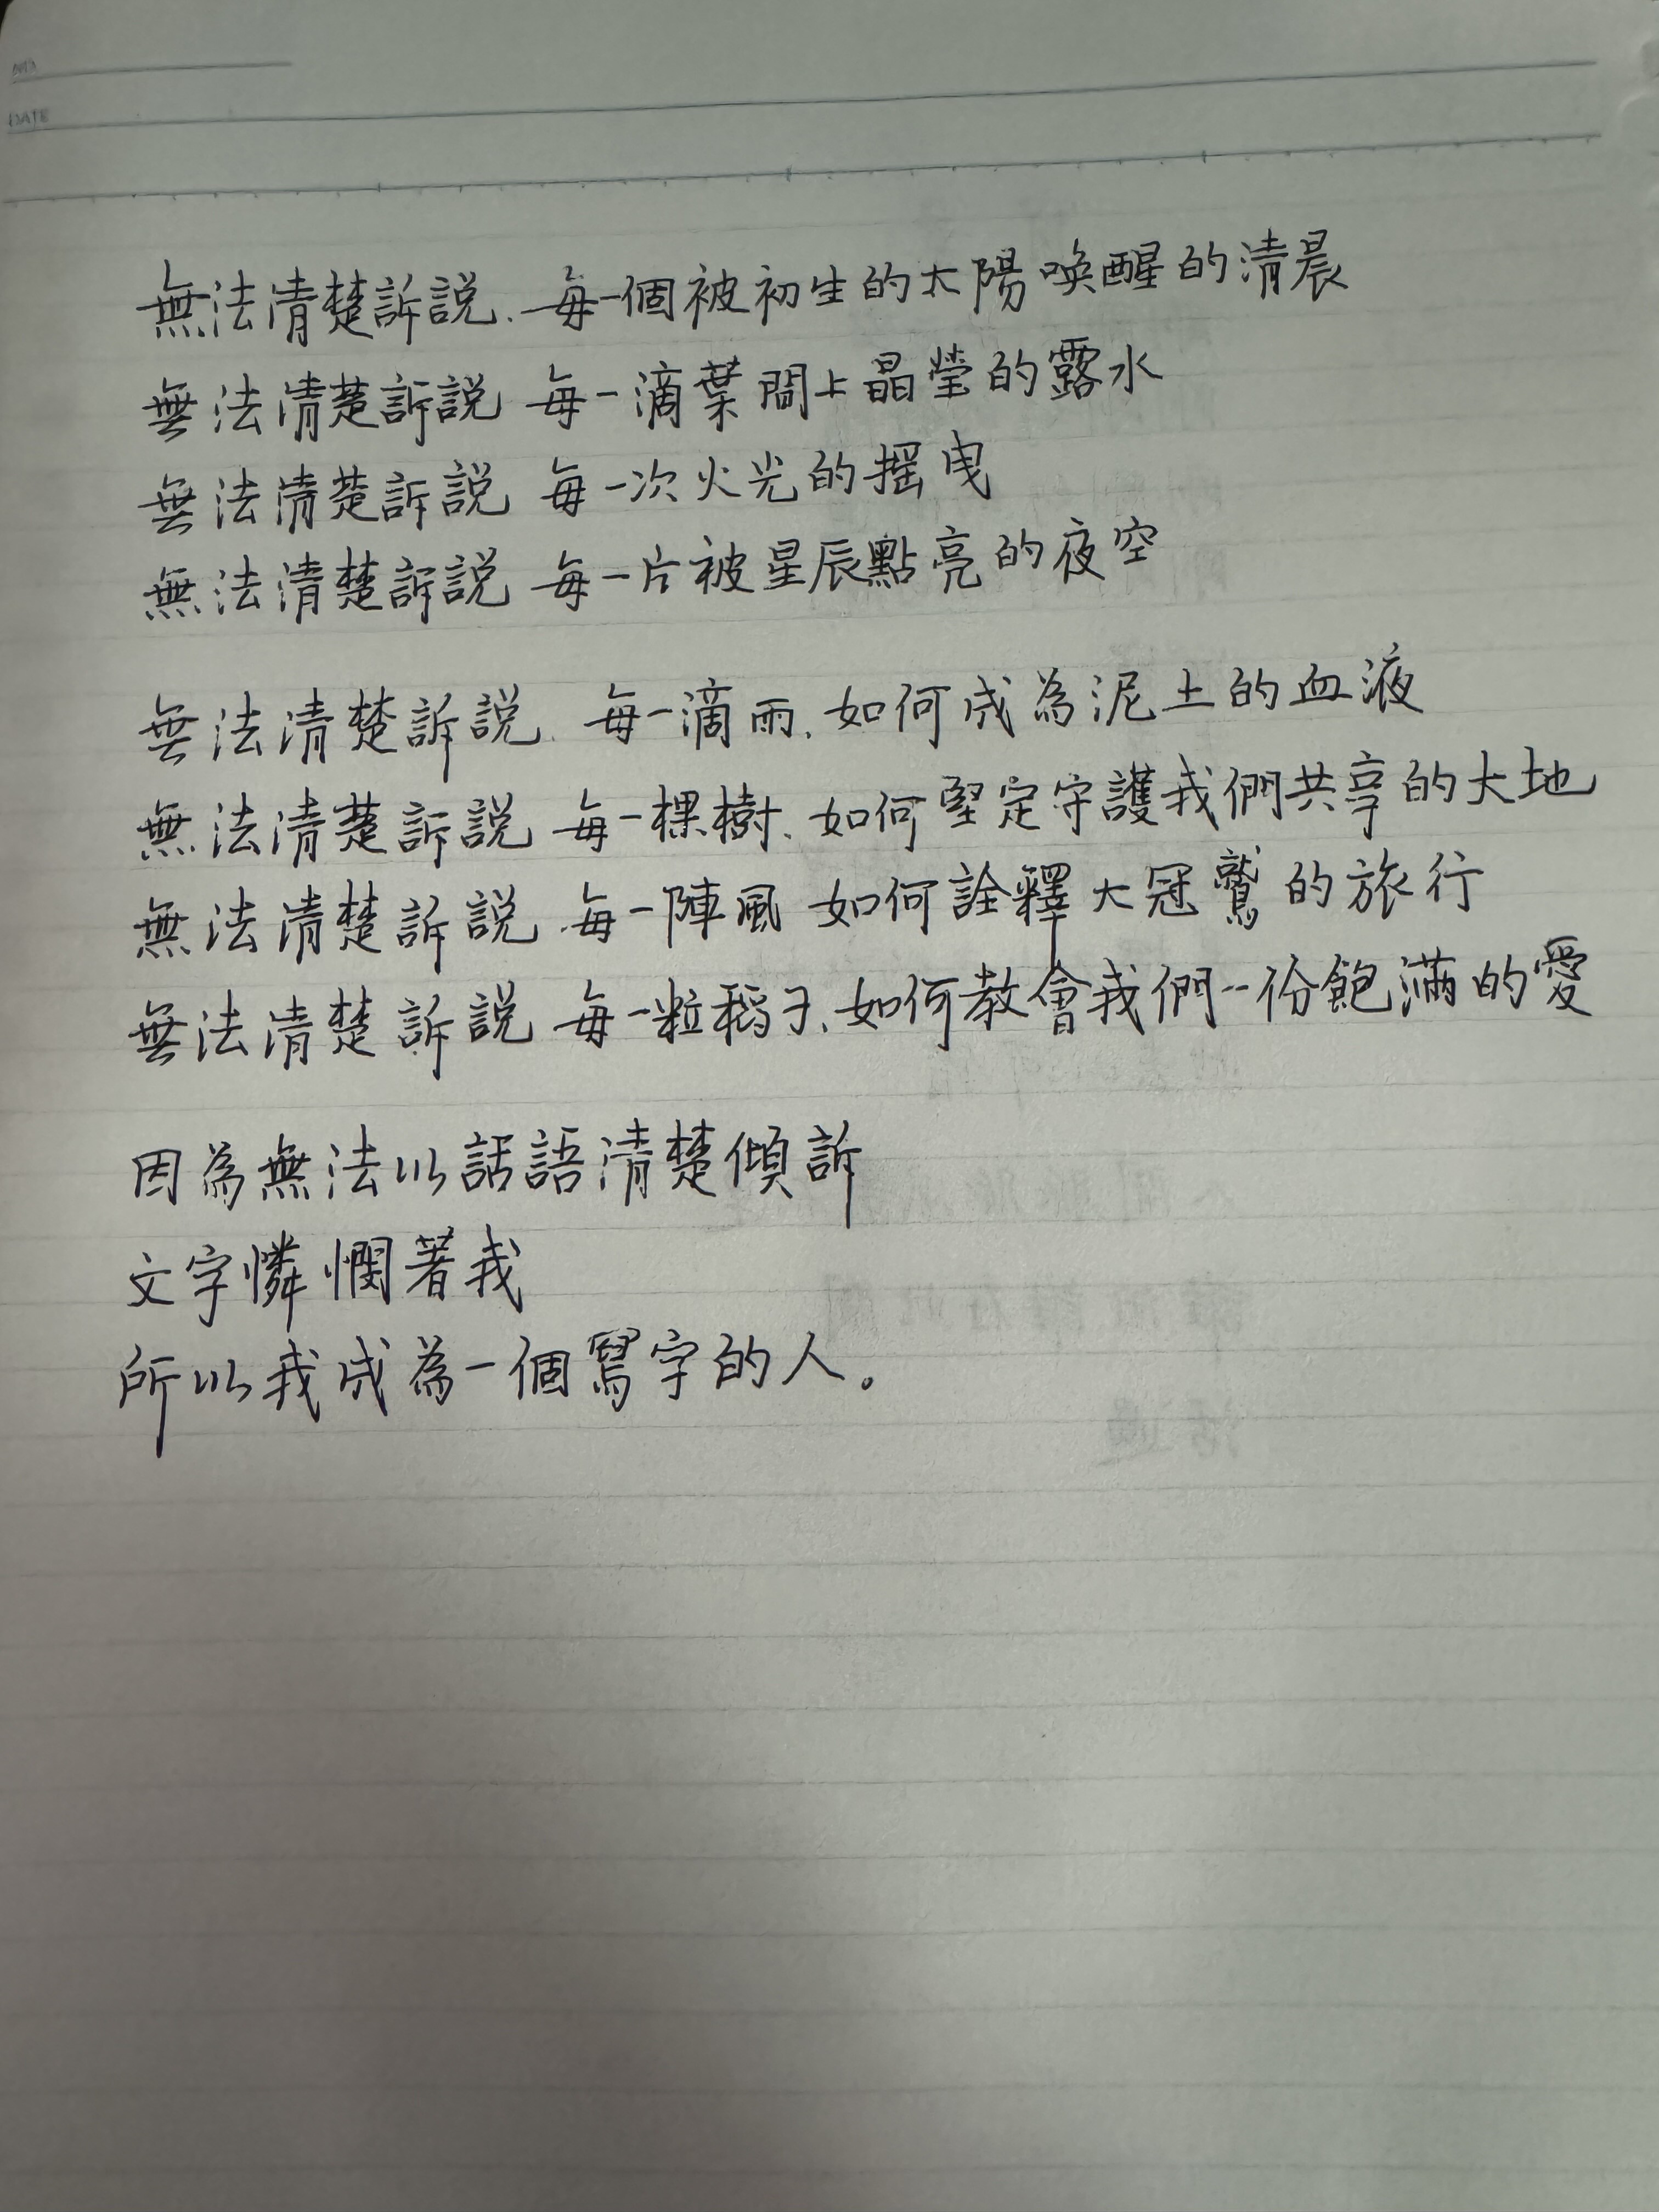 NO.
DATE
無法清楚訴説、每一個被初生的太陽喚醒的清晨
無法清楚訴説 每一滴葉間上晶瑩的露水
無法清楚訴説 每一次火光的摇曳
無法清楚訴説 每一片被星辰點亮的夜空
無法清楚訴説、每一滴雨、如何成為泥土的血液
無法清楚訴説 每一棵樹、如何堅定守護我們共享的大地
無法清楚訴説、每一陣風 如何詮釋大冠鷲的旅行
無法清楚訴説 每一粒稻子、如何教會我們一份飽滿的愛
因為無法以話語清楚傾訴
文字憐憫著我
所以我成為一個寫字的人。